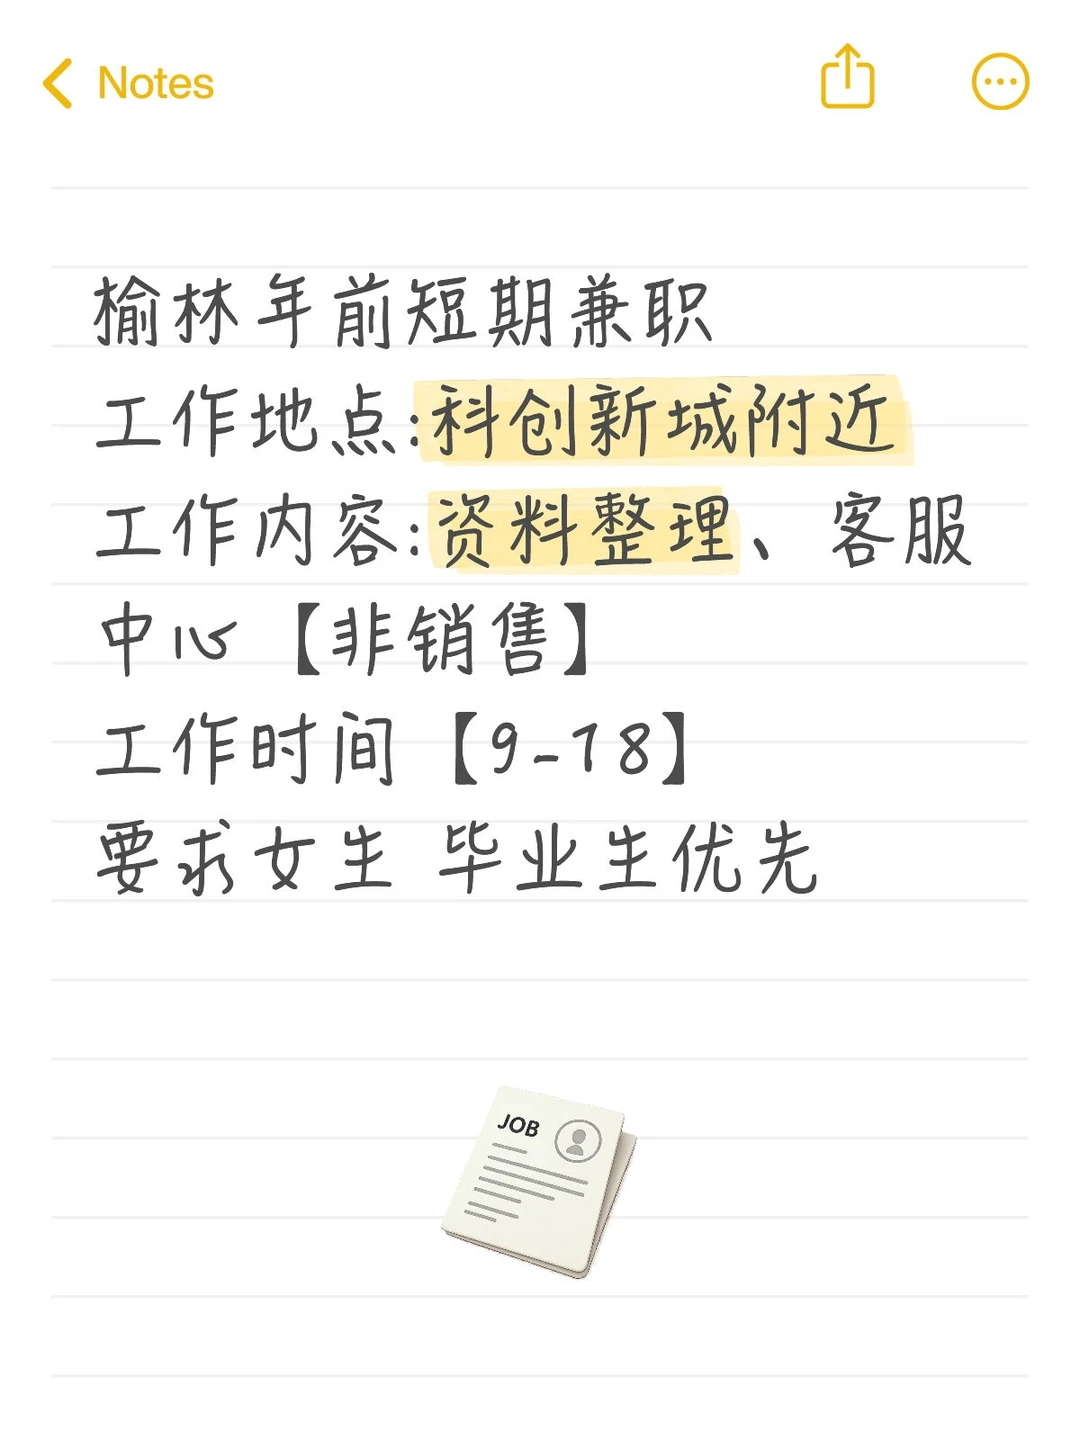 Notes
榆林年前短期兼职
工作地点:科创新城附近
工作内容:资料整理、客服
中心【非销售】
工作时间【9-18】
要求女生 毕业生优先
JOB